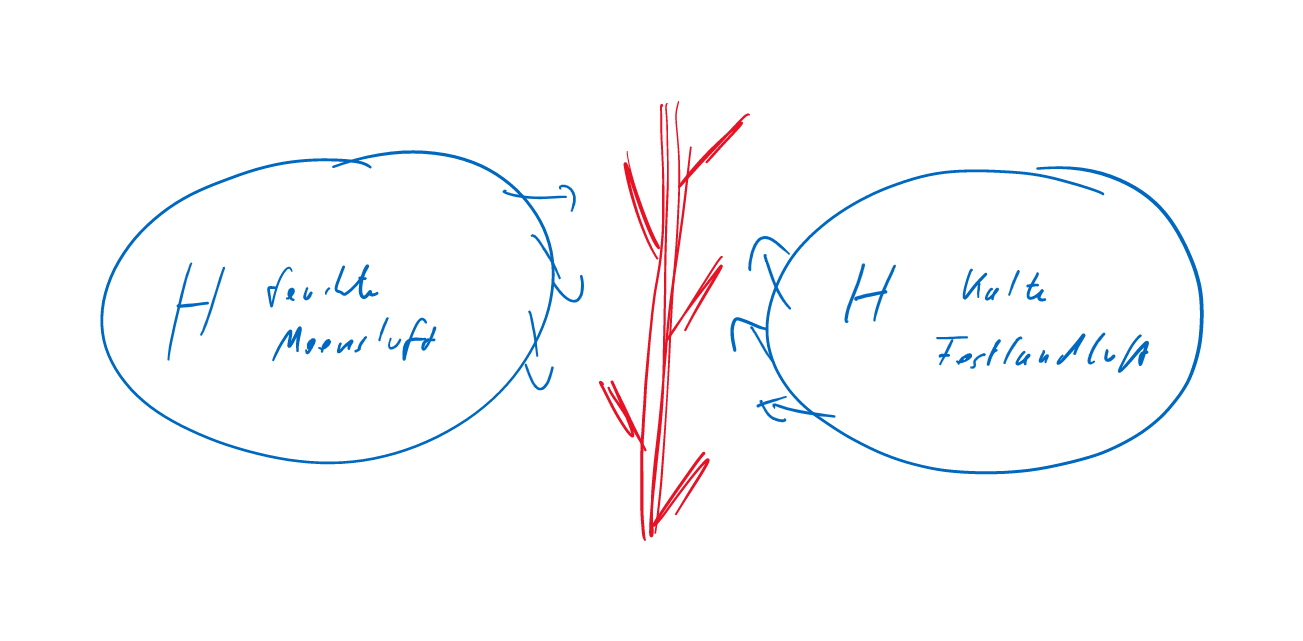 H feuchte
Meeresluft
H Kalte
Festlandluft